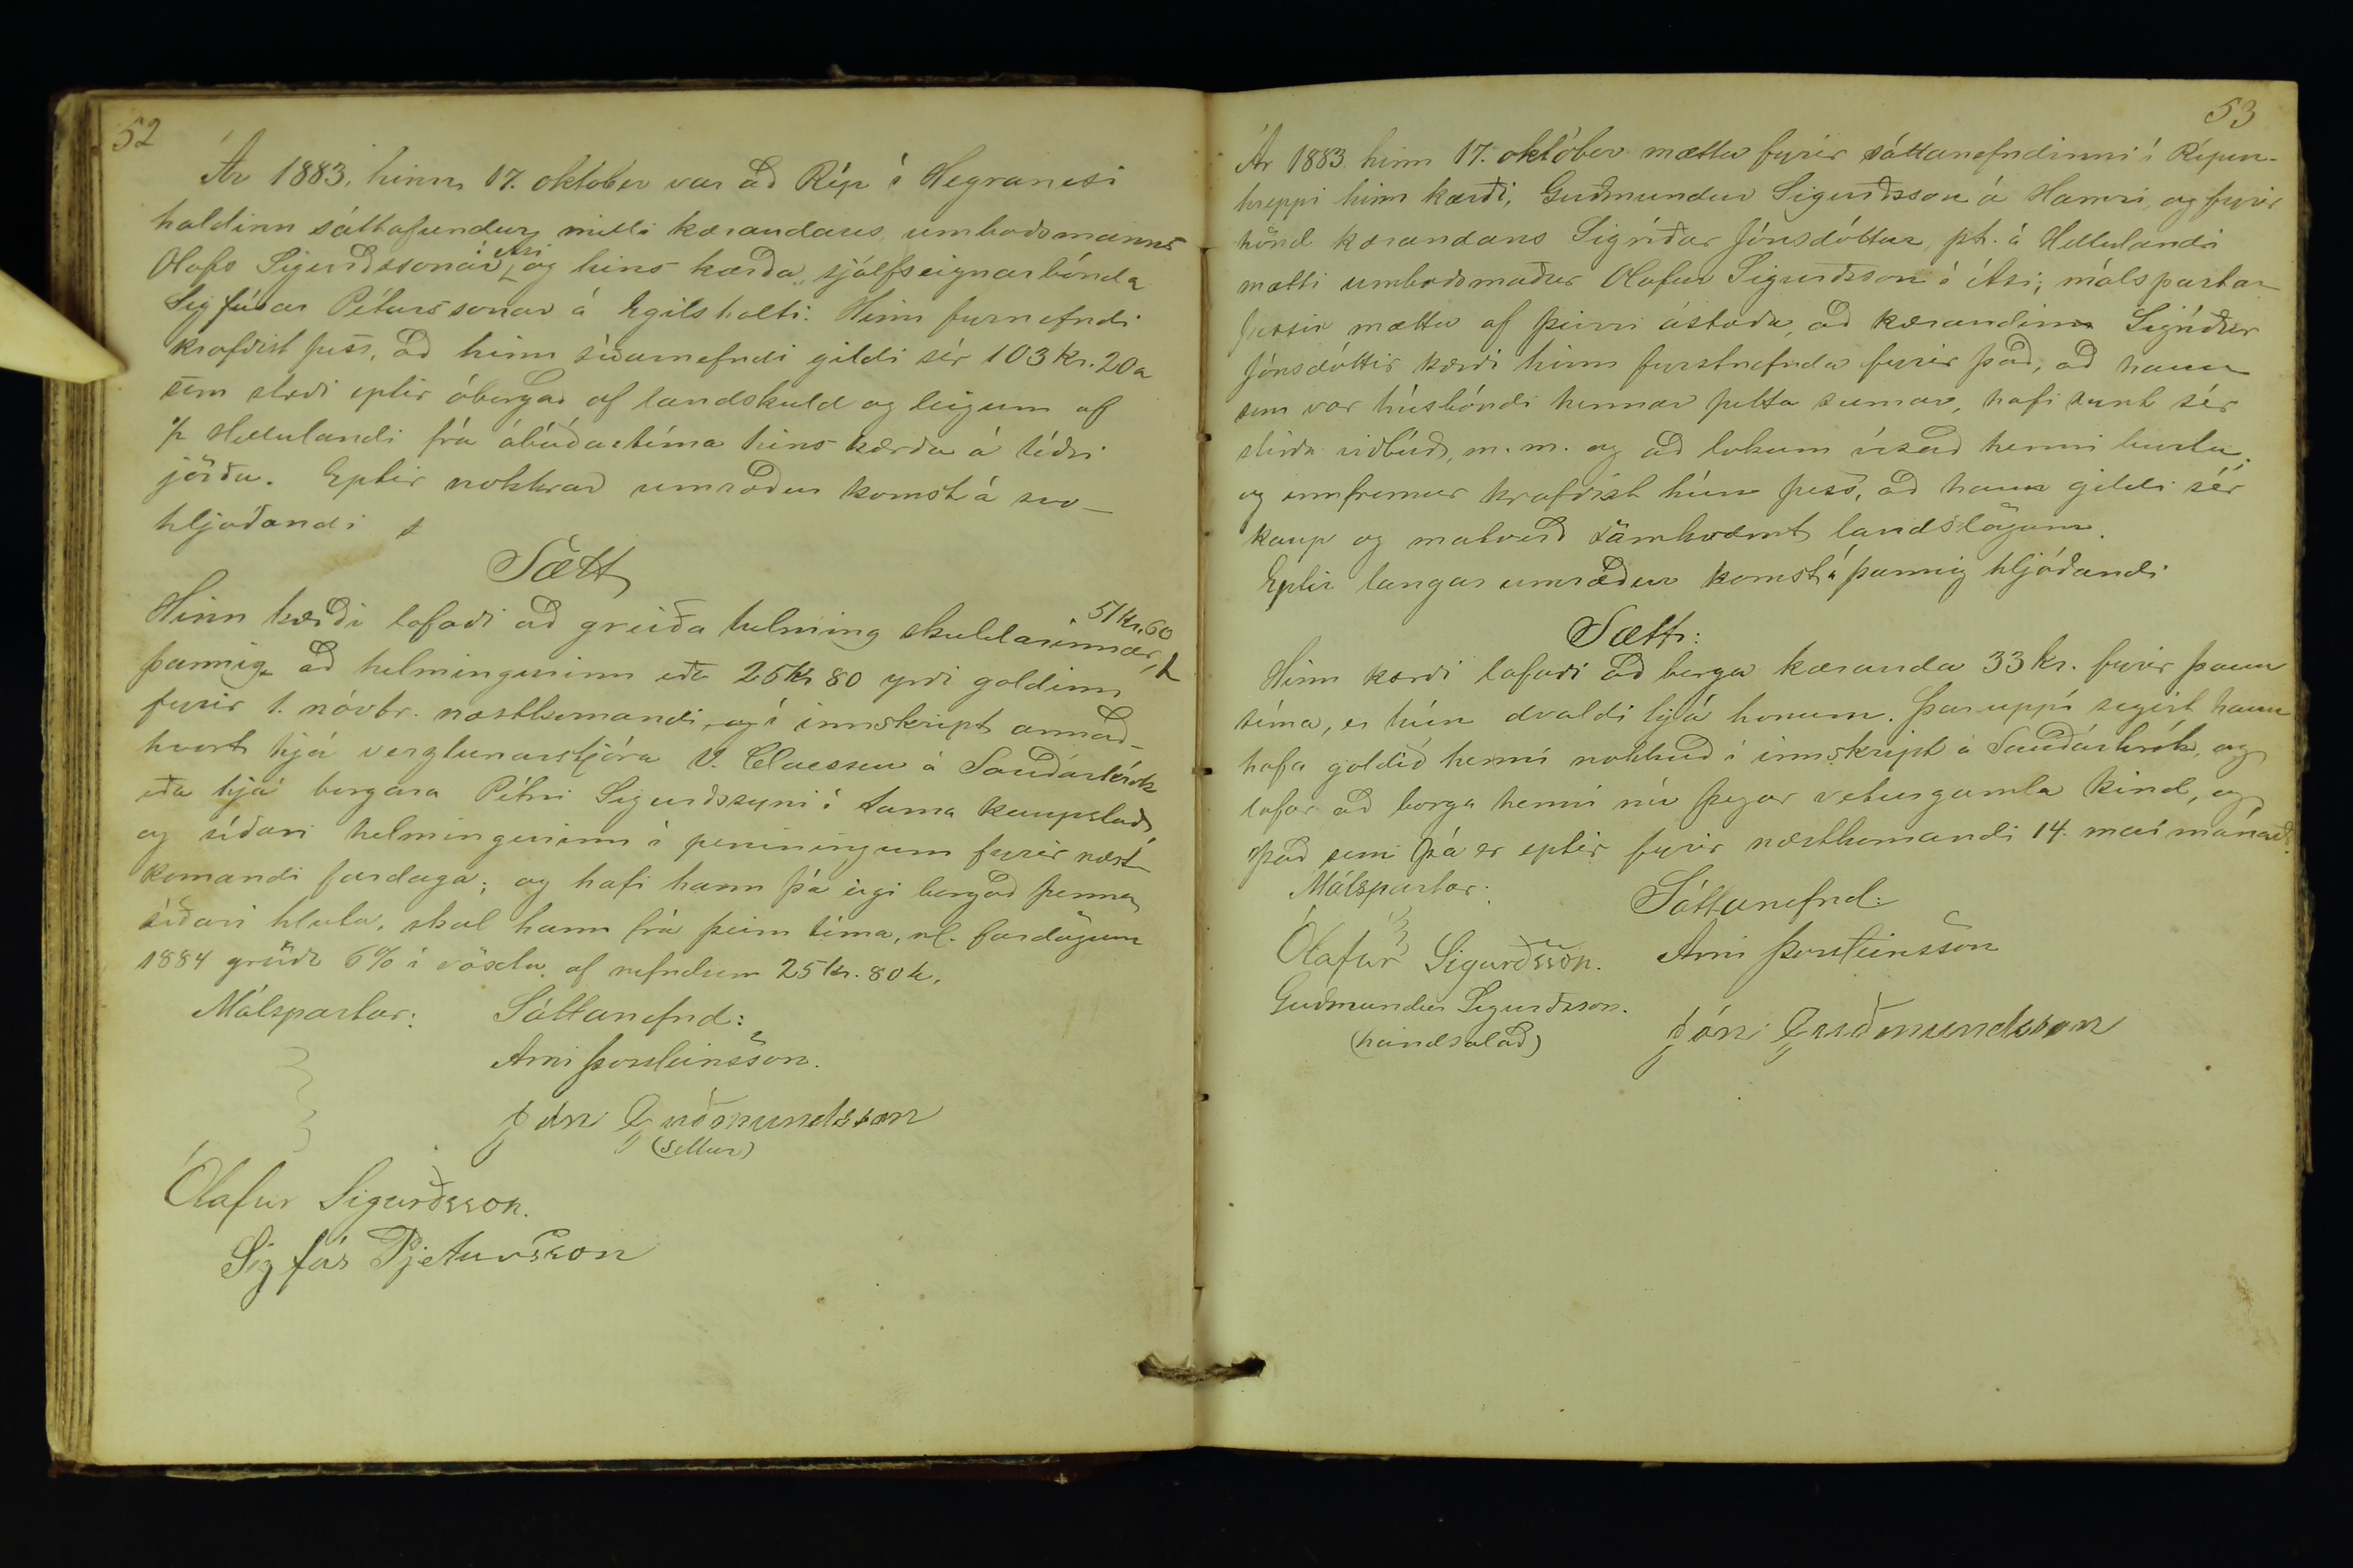 52
Ár 1883, hinn 17. október var að Ríp í Hegranesi
haldinn sáttafundur milli kærandans, umboðsmanns
Olafs Sigurðssonar í Ási og hins kærða, sjálfseignarbónda
Sigfúsar Péturssonar á Egilsholti. Hinn fyrnefndi
krafðist þess, að hinn síðarnefndi gildi sér 103 kr. 20 a
sem stæði eptir óborgað af landskuld og leigum af
Hellulandi frá ábúðartíma hins kærða á téðri
jörðu. Eptir nokkrar umræður komst á svo-
hljóðandi
Sætt
Hinn kærði lofaði að greiða helming skuldarinnar, 51 kr. 60
þannig að helmingurinn eða 25 kr 80 yrði goldinn
fyrir 1. nóvbr. næstkomandi, og í innskript annað-
hvort hjá verzlunarstjóra V. Claessen á Sauðárkrók
eða hjá borgara Pétri Sigurðssyni í sama kaupstað,
og síðari helmingurinn í peningum fyrir næst-
komandi fardaga; og hafi hann þá eigi borgað þennan
síðari hluta, skal hann frá þeim tíma, nl. fardögum
1884 greiða 6% í vöxtu af nefndum 25 kr. 80 a.
Málspartar: Sáttanefnd:
Arni Þorsteinsson.
Jón Guðmundsson
(settur)
Ólafur Sigurðsson.
Sigfús Pjetursson
53
Ár 1883 hinn 17. október mættu fyrir sáttanefndinni í Rípur-
hreppi hinn kærði, Guðmundur Sigurðsson á Hamri, og fyrir
hönd kærandans Sigríðar Jónsdóttur, pt. á Hellulandi
mætti umboðsmaður Olafur Sigurðsson í Ási; málspartar
þessir mættu af þeirri ástæðu, að kærandinn Sigríður
Jónsdóttir kærði hinn fyrstnefnda fyrir það, að hann
sem var húsbóndi hennar þetta sumar, hafi sýnt sér
stirða viðbúð, m. m. og að lokum vísað henni burtu;
og ennfremur krafðist hún þess, að hann gildi sér
kaup og matverð samkvæmt landslögum.
Eptir langar umræður komst á þannig hljóðandi
Sætt:
Hinn kærði lofaði að borga kæranda 33 kr. fyrir þann
tíma, er hún dvaldi hjá honum. Þar uppí segist hann
hafa goldið henni nokkuð í innskript á Sauðárkrók, og
lofar að borga henni nú þegar veturgamla kind, og
það sem þá er eptir fyrir næstkomandi 14. maí mánað.
Málspartar: Sáttanefnd:
Ólafur Sigurðsson. Arni Þorsteinsson
Guðmundur Sigurðsson.
(handsalað) Jón Guðmundsson